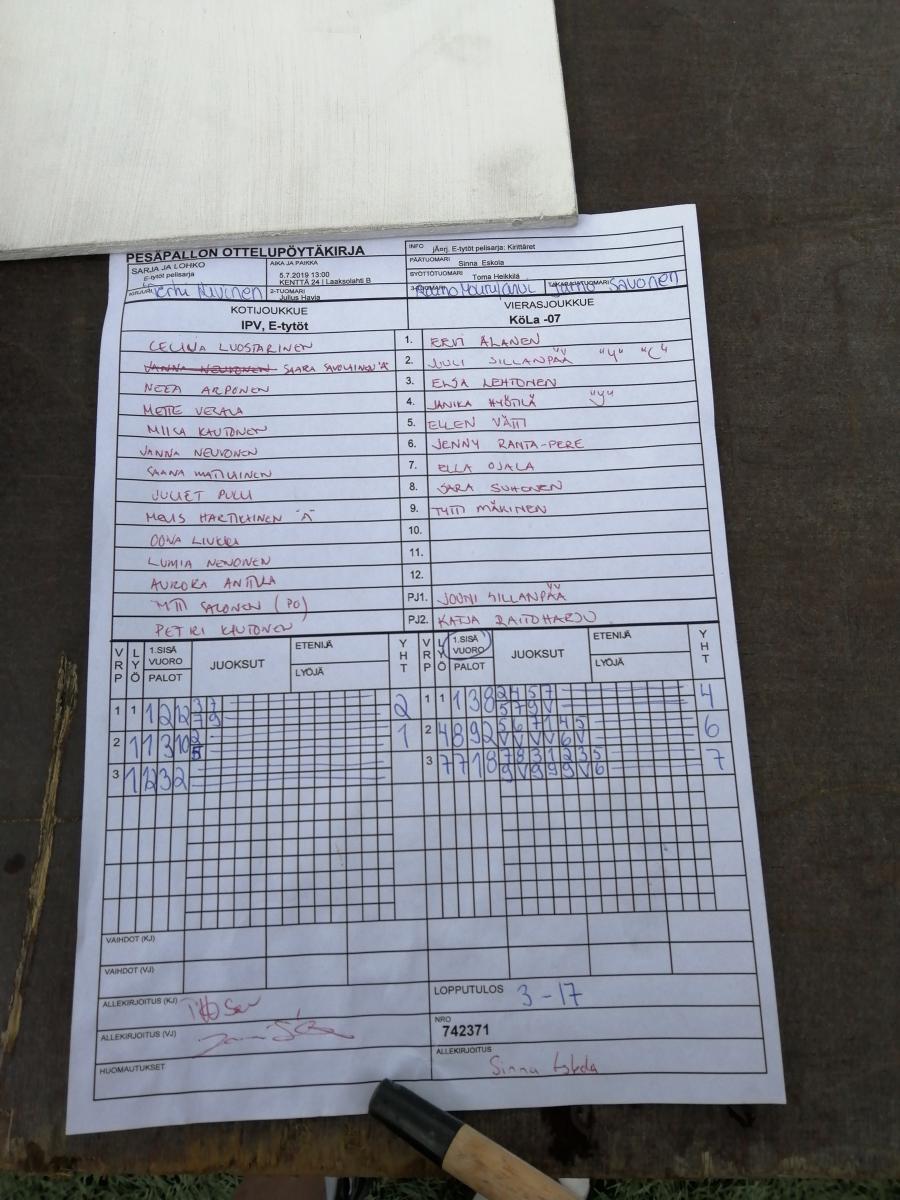 PESÄPALLON OTTELUPÖYTÄKIRJA
INFO jÄ¤rj. E-tytöt pelisarja: Kirittäret
SARJA JA LOHKO
E-tytöt pelisarja
AIKA JA PAIKKA
5.7.2019 13:00
KENTTÄ 24 | Laaksolahti B
PÄÄTUOMARI
Sinna Eskola
SYÖTTÖTUOMARI
Toma Heikkilä
KIRJURI
2-TUOMARI
Julius Havia
3-TUOMARI
TAKARAJATUOMARI
Savonen
KOTIJOUKKUE
IPV, E-tytöt
VIERASJOUKKUE
KöLa -07
CELINA LUOSTARINEN 1. EEVI ALANEN
JANNA NEUVONEN SAARA SAVOLAINEN "A" 2. JULI SILLANPÄÄ "Y" "C"
NEEA ARPONEN 3. ELSA LEHTONEN
METTE VEHALA 4. JANIKA HYÖTILÄ "Y"
MIISA KAUTONEN 5. ELLEN VÄTTI
JANNA NEUVONEN 6. JENNY RANTA-PERE
SAANA MATILAINEN 7. ELLA OJALA
JULIET PULLI 8. SARA SUHONEN
HARTIKAINEN "A" 9. TYTTI MÄKINEN
OONA LIUKKU 10.
LUMIA NENONEN 11.
AURORA ANTTILA 12.
SALONEN (PO) PJ1. JOUNI SILLANPÄÄ
PETRI KAUTONEN PJ2. KATJA RAITOHARJU
VRP LYÖ 1.SISÄ VUORO PALOT JUOKSUT ETENIJÄ LYÖJÄ YHT VRP LYÖ 1.SISÄ VUORO PALOT JUOKSUT ETENIJÄ LYÖJÄ YHT
1 1 1 2 12 3 7 2 1 1 1 3 8 2 4 5 7 4
7 9 5 7 9 V
2 11 3 10 2 1 2 4 8 9 2 5 6 7 1 4 5 6
5 V V V V 6 V
3 1 12 3 2 3 7 7 1 8 7 8 3 1 2 3 5 7
9 V 9 9 9 V 6
VAIHDOT (KJ)
VAIHDOT (VJ)
ALLEKIRJOITUS (KJ)
LOPPUTULOS 3 - 17
ALLEKIRJOITUS (VJ)
NRO
742371
HUOMAUTUKSET
ALLEKIRJOITUS
Sinna Eskola